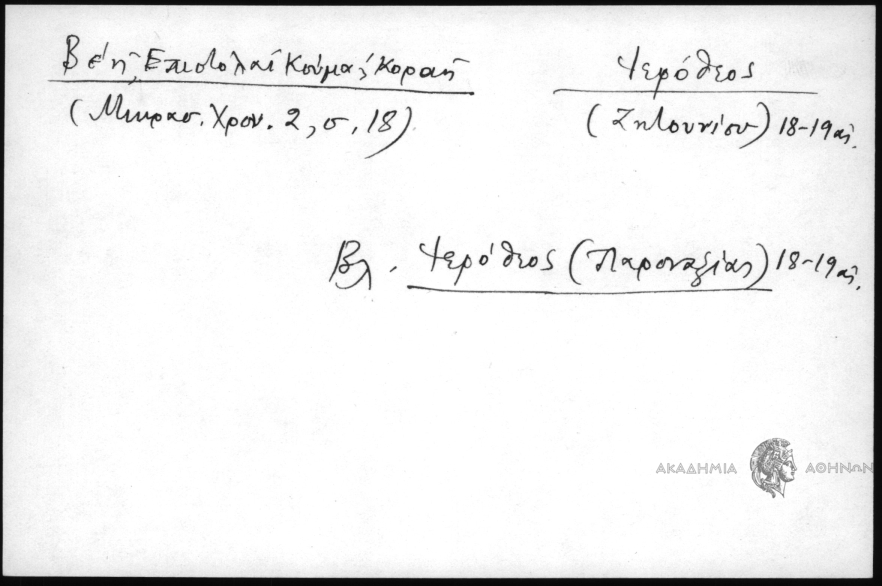 Βέη, Ἐπιστολαί Κούμα, Κοραῆ
(Μικρασ. Χρον. 2, σ. 18)
Ἱερόθεος
(Ζητουνίου) 18-19 αἰ.
Βλ. Ἱερόθεος (Παροναξίας) 18-19 αἰ.
ΑΚΑΔΗΜΙΑ ΑΘΗΝΩΝ